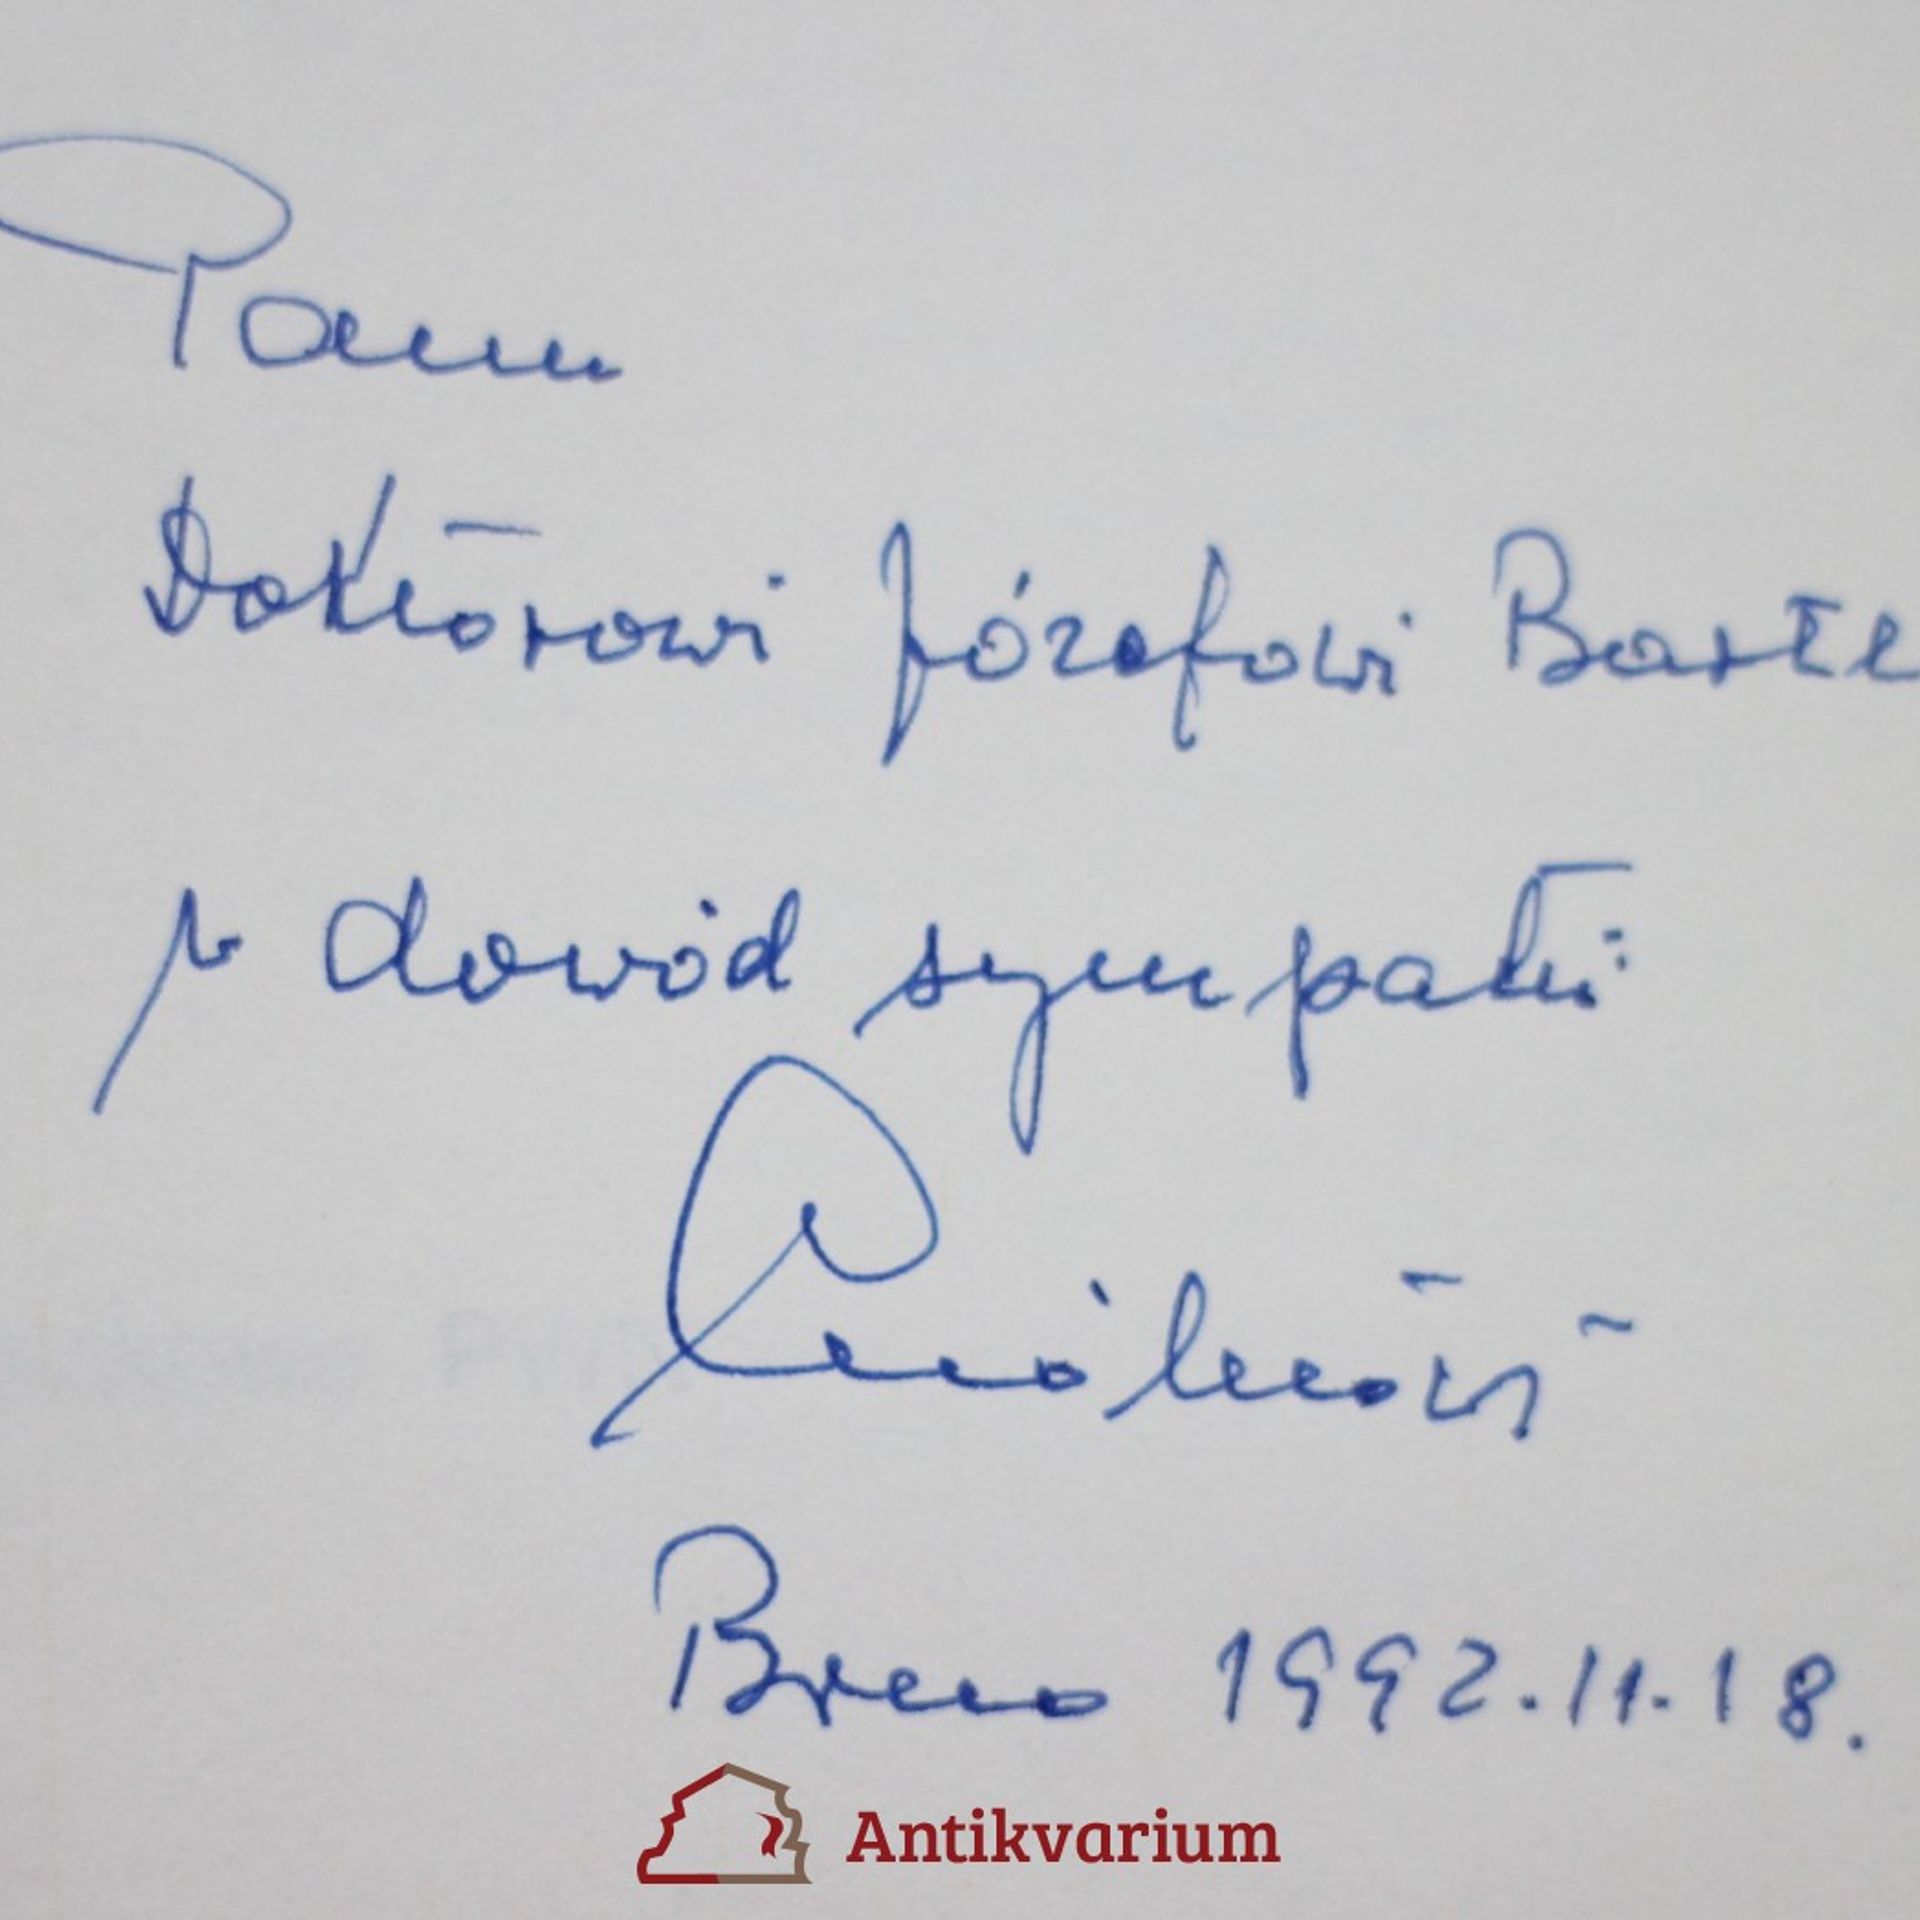 Panu
Doktorowi Józefowi Barte
w dowód sympatii
Brno 1992.11.18.
Antikvarium